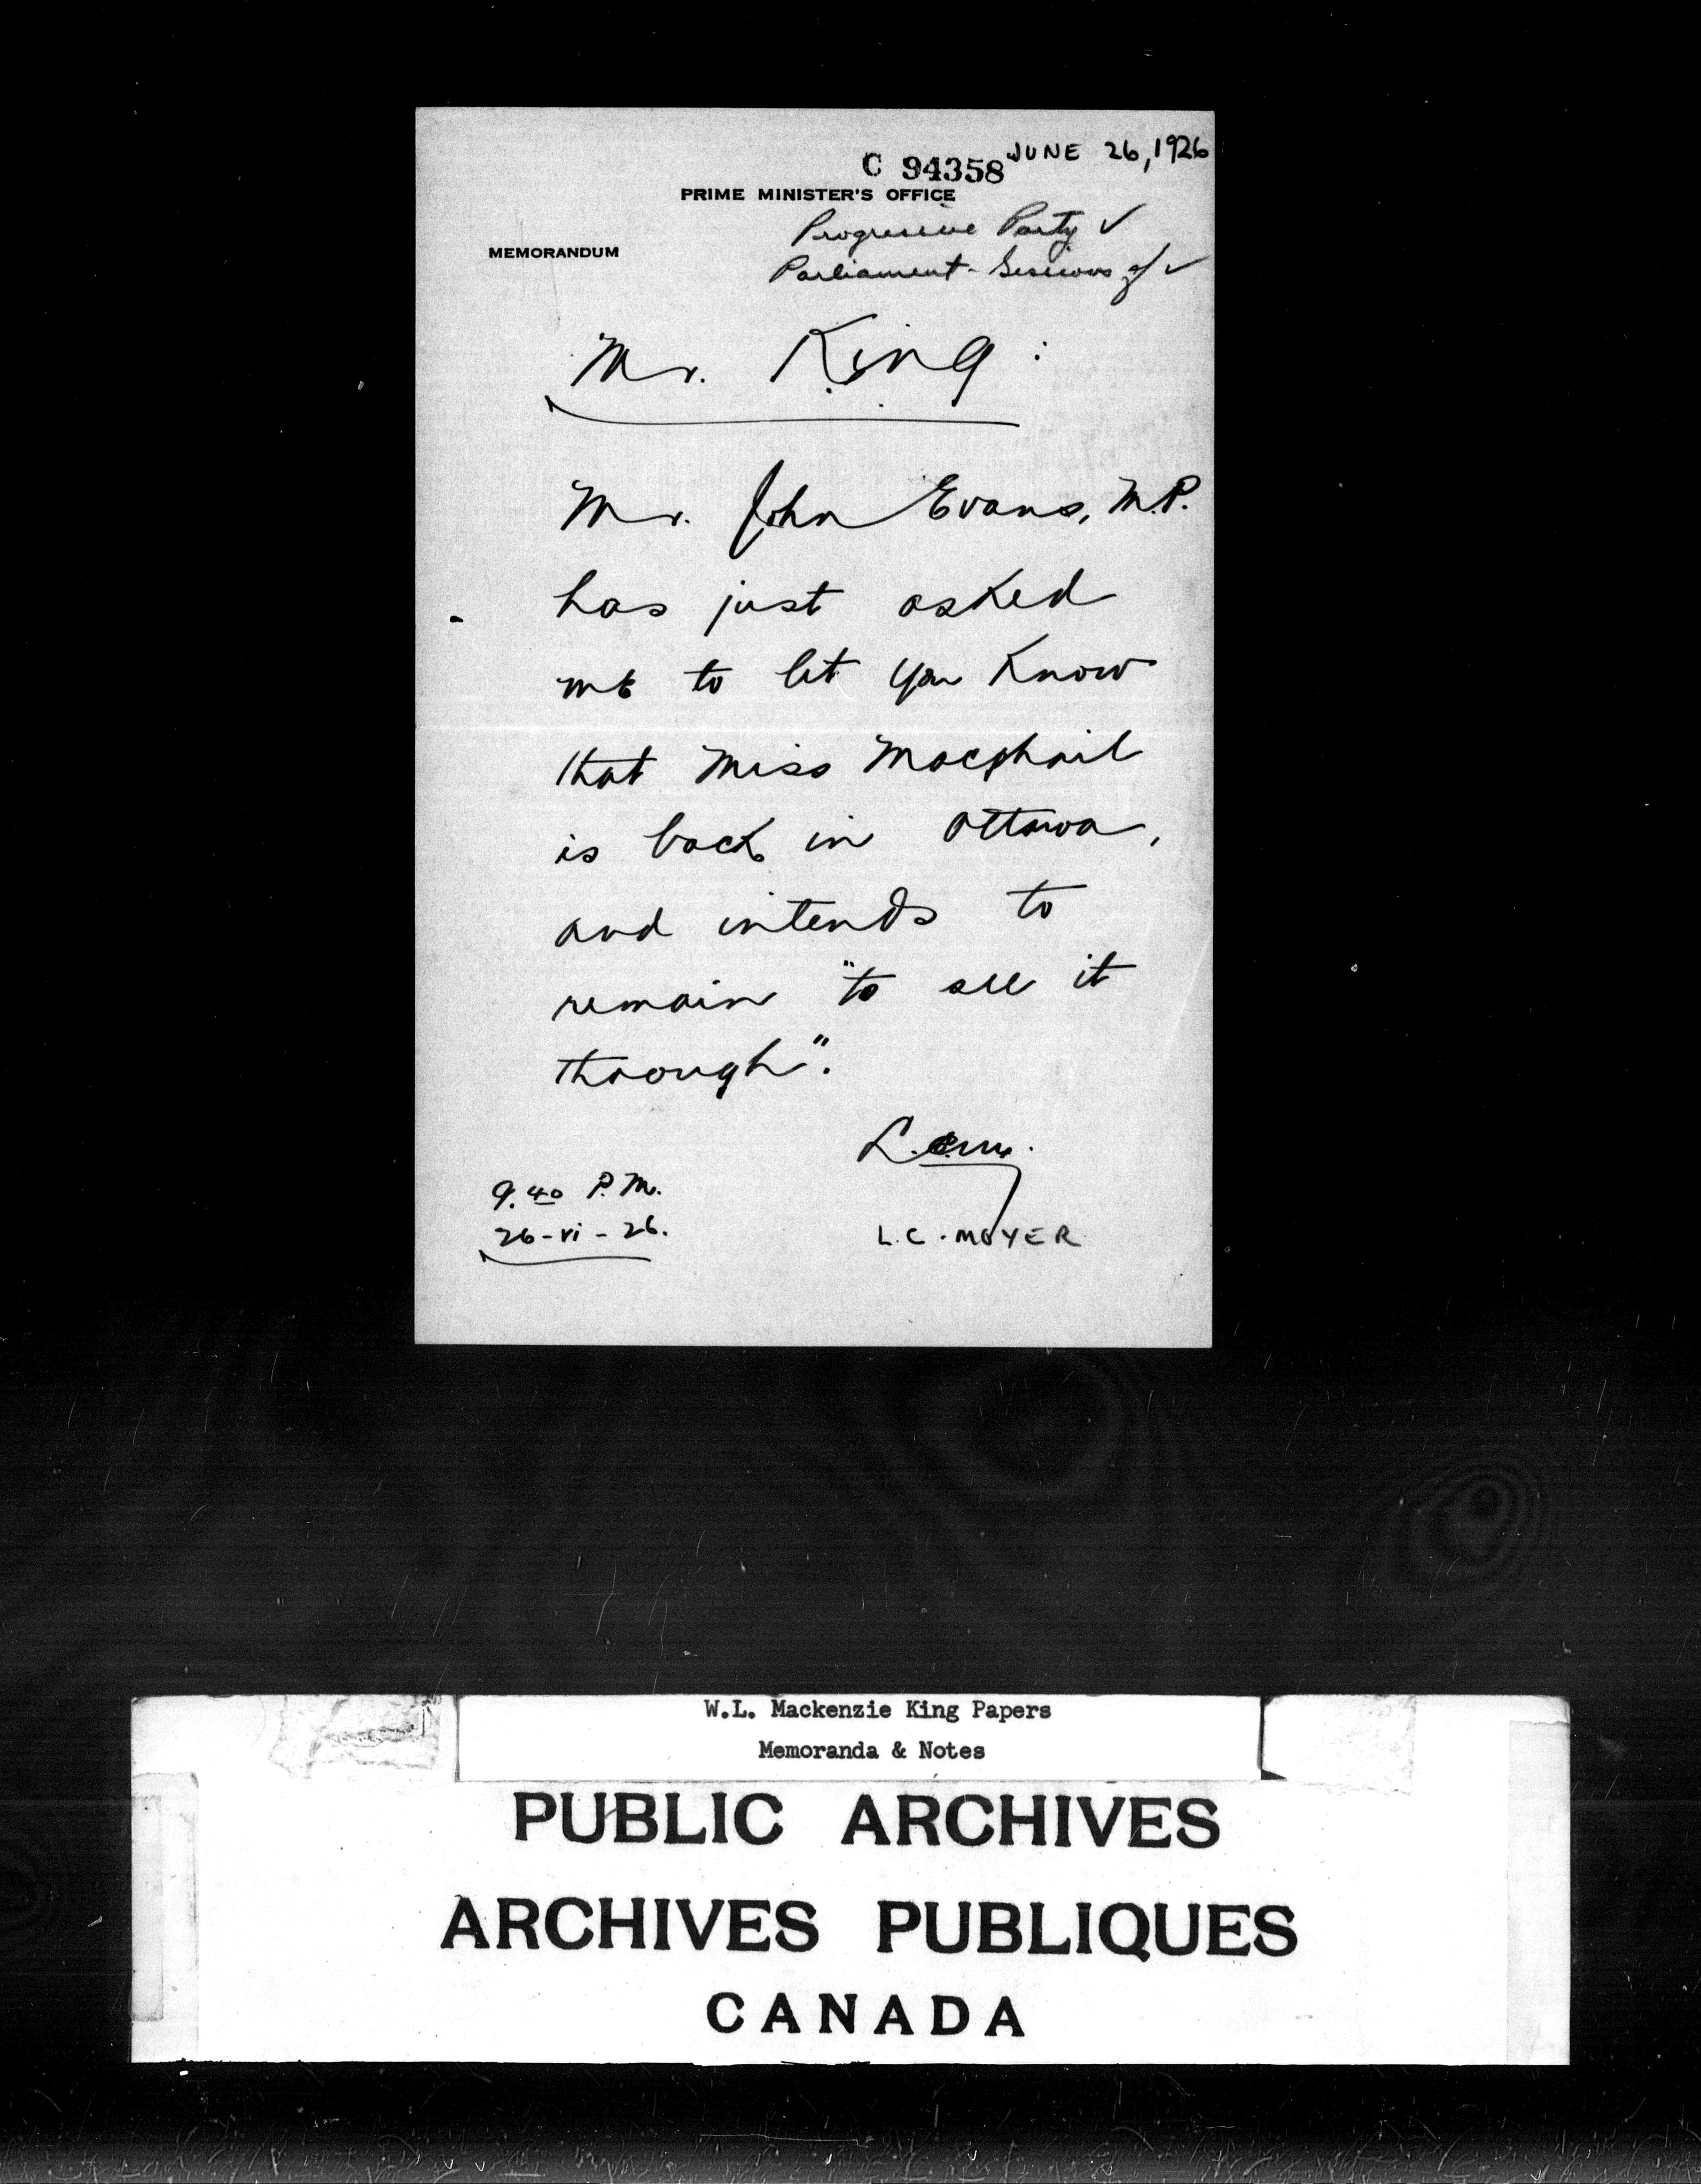 JUNE 26, 1926
C 94358
PRIME MINISTER'S OFFICE
Progressive Party ✓
MEMORANDUM
Parliament - Sessions of ✓
Mr. King:
Mr. John Evans, M.P.
has just asked
me to let you know
that Miss Macphail
is back in Ottawa,
and intends to
remain "to see it
through".
L.C.M.
9.40 P.M.
26-vi-26.
L.C. MOYER
W.L. Mackenzie King Papers
Memoranda & Notes
PUBLIC ARCHIVES
ARCHIVES PUBLIQUES
CANADA